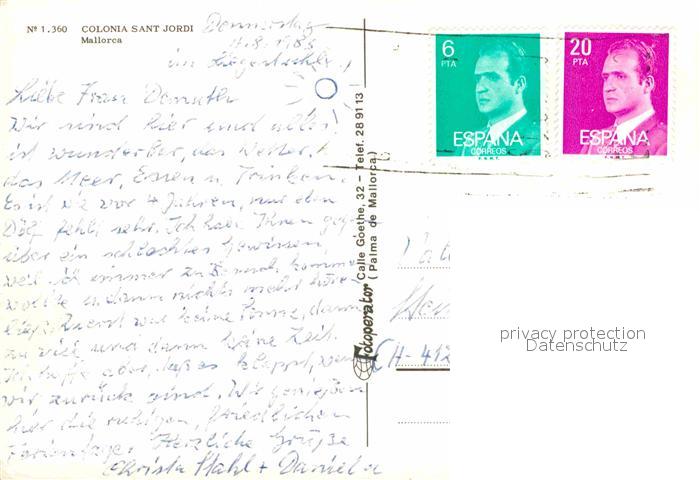 Nº 1.360 COLONIA SANT JORDI
Mallorca
Donnerstag
im Liegestuhl
Liebe Frau Demuth
Wir sind hier und alles
ist wunderbar, das Wetter,
das Meer, Essen u. Trinken.
Es ist wie vor 4 Jahren, nur den
fehlt sehr. Ich habe Ihnen gegen-
über ein schlechtes Gewissen,
weil ich immer zu Besuch kommen
wollte u. dann nichts mehr hören
liess. Zuerst war keine Sonne, dann
zu viel und dann keine Zeit.
Ich hoffe aber, dass es klappt, wenn
wir zurück sind. Wir geniessen
hier die ruhigen, friedlichen
Ferientage. Herzliche Grüsse
Christa Stahl + Daniela
Fotoperator
Calle Goethe, 32 - Telef. 28 91 13
(Palma de Mallorca)
6
PTA
ESPAÑA
CORREOS
F.N.M.T.
20
PTA
ESPAÑA
CORREOS
F.N.M.T.
CH-412
privacy protection
Datenschutz